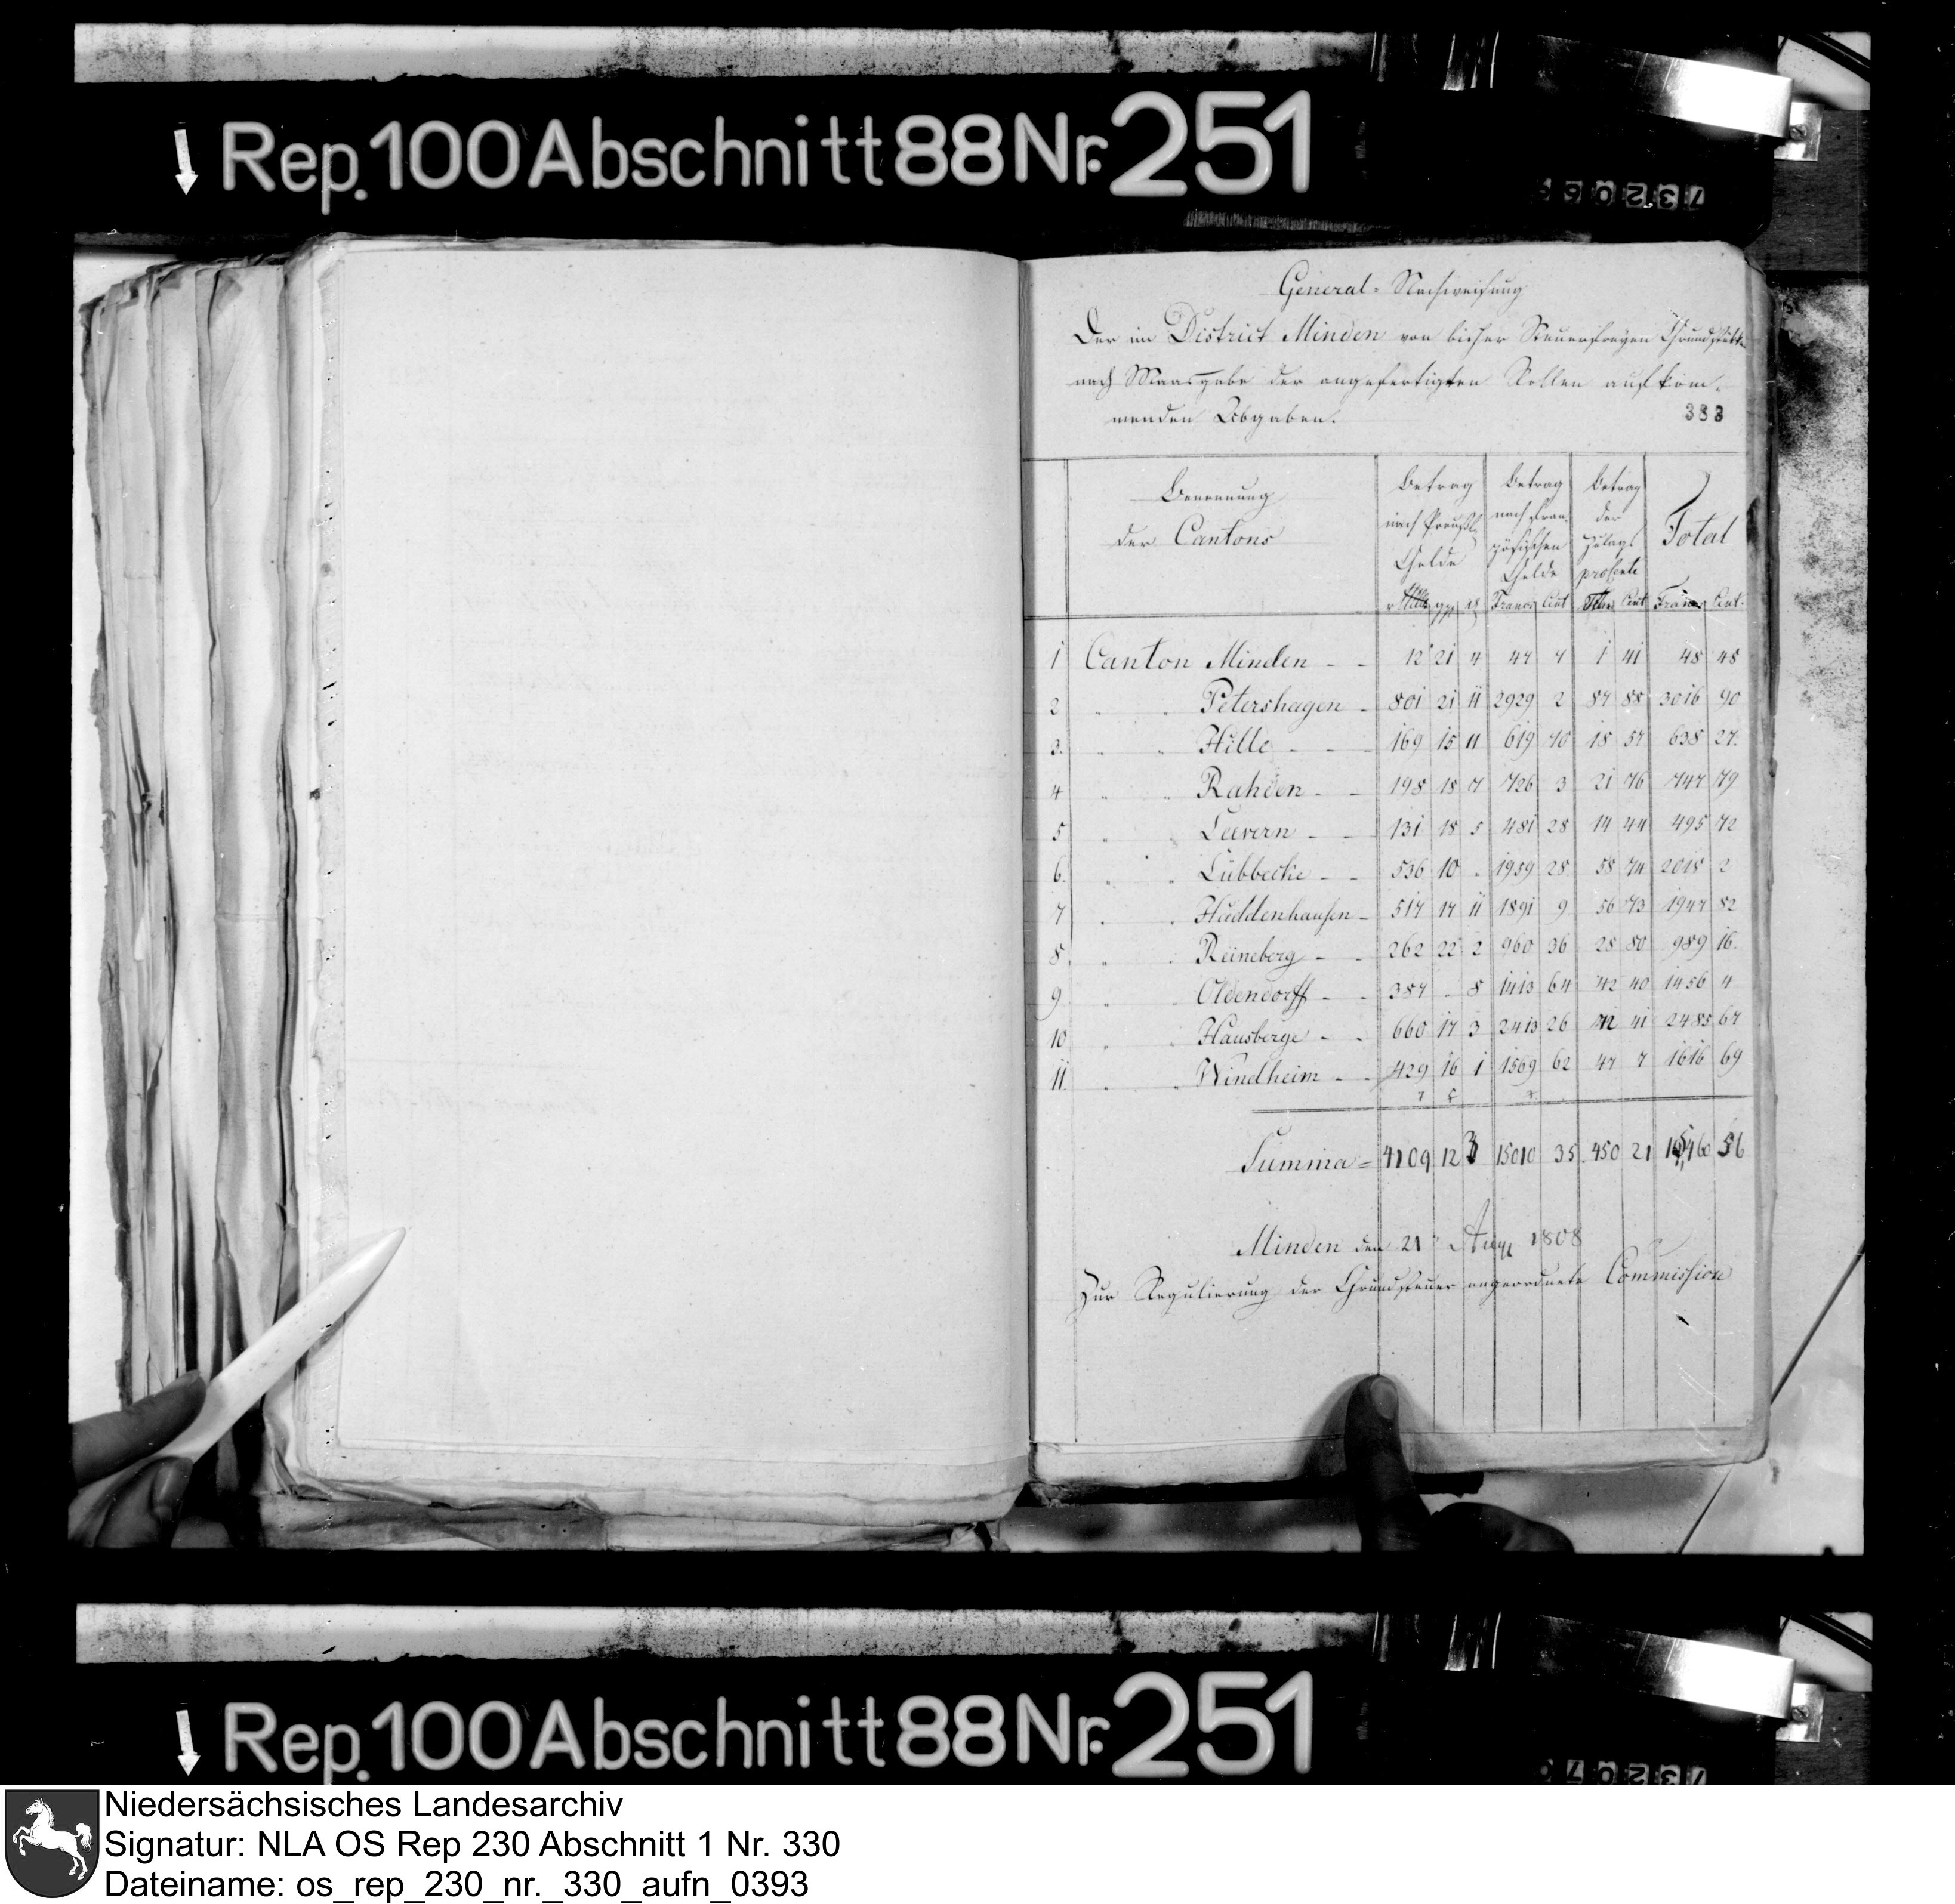 Rep. 100 Abschnitt 88 Nr. 251
General-Nachweisung
Der im District Minden von bisher Steuerfreyen Grundstükken
nach Maasgabe der angefertigten Rollen aufkom-
menden Abgaben.
383
Benennung der Cantons | Betrag nach Preußl. Gelde | Betrag nach Französischen Gelde | Betrag der Zulags | Total
ggr | Francs Cent | Cent | Francs Cent.
1 Canton Minden - - 12 21 4 47 7 1 41 48 48
2 " " Petershagen - 801 21 11 2929 2 87 88 3016 90
3. " " Hille - - 169 15 11 619 70 18 57 638 27.
4 " " Rahden - - 198 18 7 726 3 21 76 747 79
5 " " Leevern - - 131 18 5 481 28 14 44 495 72
6. " " Lübbecke - - 536 10 - 1959 28 58 74 2018 2
7 " " Huddenhausen - 517 17 11 1891 9 56 73 1947 82
8 " " Reineberg - - 262 22 2 960 36 28 80 989 16.
9 " " Oldendorff - - 387 - 8 1413 64 42 40 1456 4
10 " " Hausberge - - 660 17 3 2413 26 72 41 2485 67
11 " " Windheim - - 429 16 1 1569 62 47 7 1616 69
Summa = 4109 12 3 15010 35 450 21 15460 56
Minden den 21 Aug 1808
Zur Regulierung der Grundsteuer angeordnete Commission
Rep. 100 Abschnitt 88 Nr. 251
Niedersächsisches Landesarchiv
Signatur: NLA OS Rep 230 Abschnitt 1 Nr. 330
Dateiname: os_rep_230_nr._330_aufn_0393